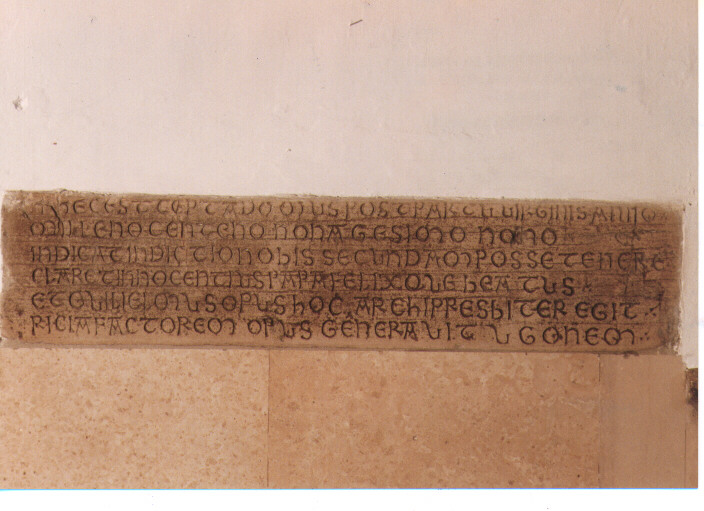 HEC EST CEPTA DOMUS POST PARTU VIRGINIS ANNO
MILLENO CENTENO NONAGESIMO NONO
INDICAT INDICTIO NOBIS SECUNDAM POSSE TENERE
CLARET INNOCENTIUS PAPA FELIXQUE BEATUS
ET GUILIELMUS OPUS HOC ARCHIPRESBITER EGIT
FACTOREM OPUS GENERAVIT UGONEM